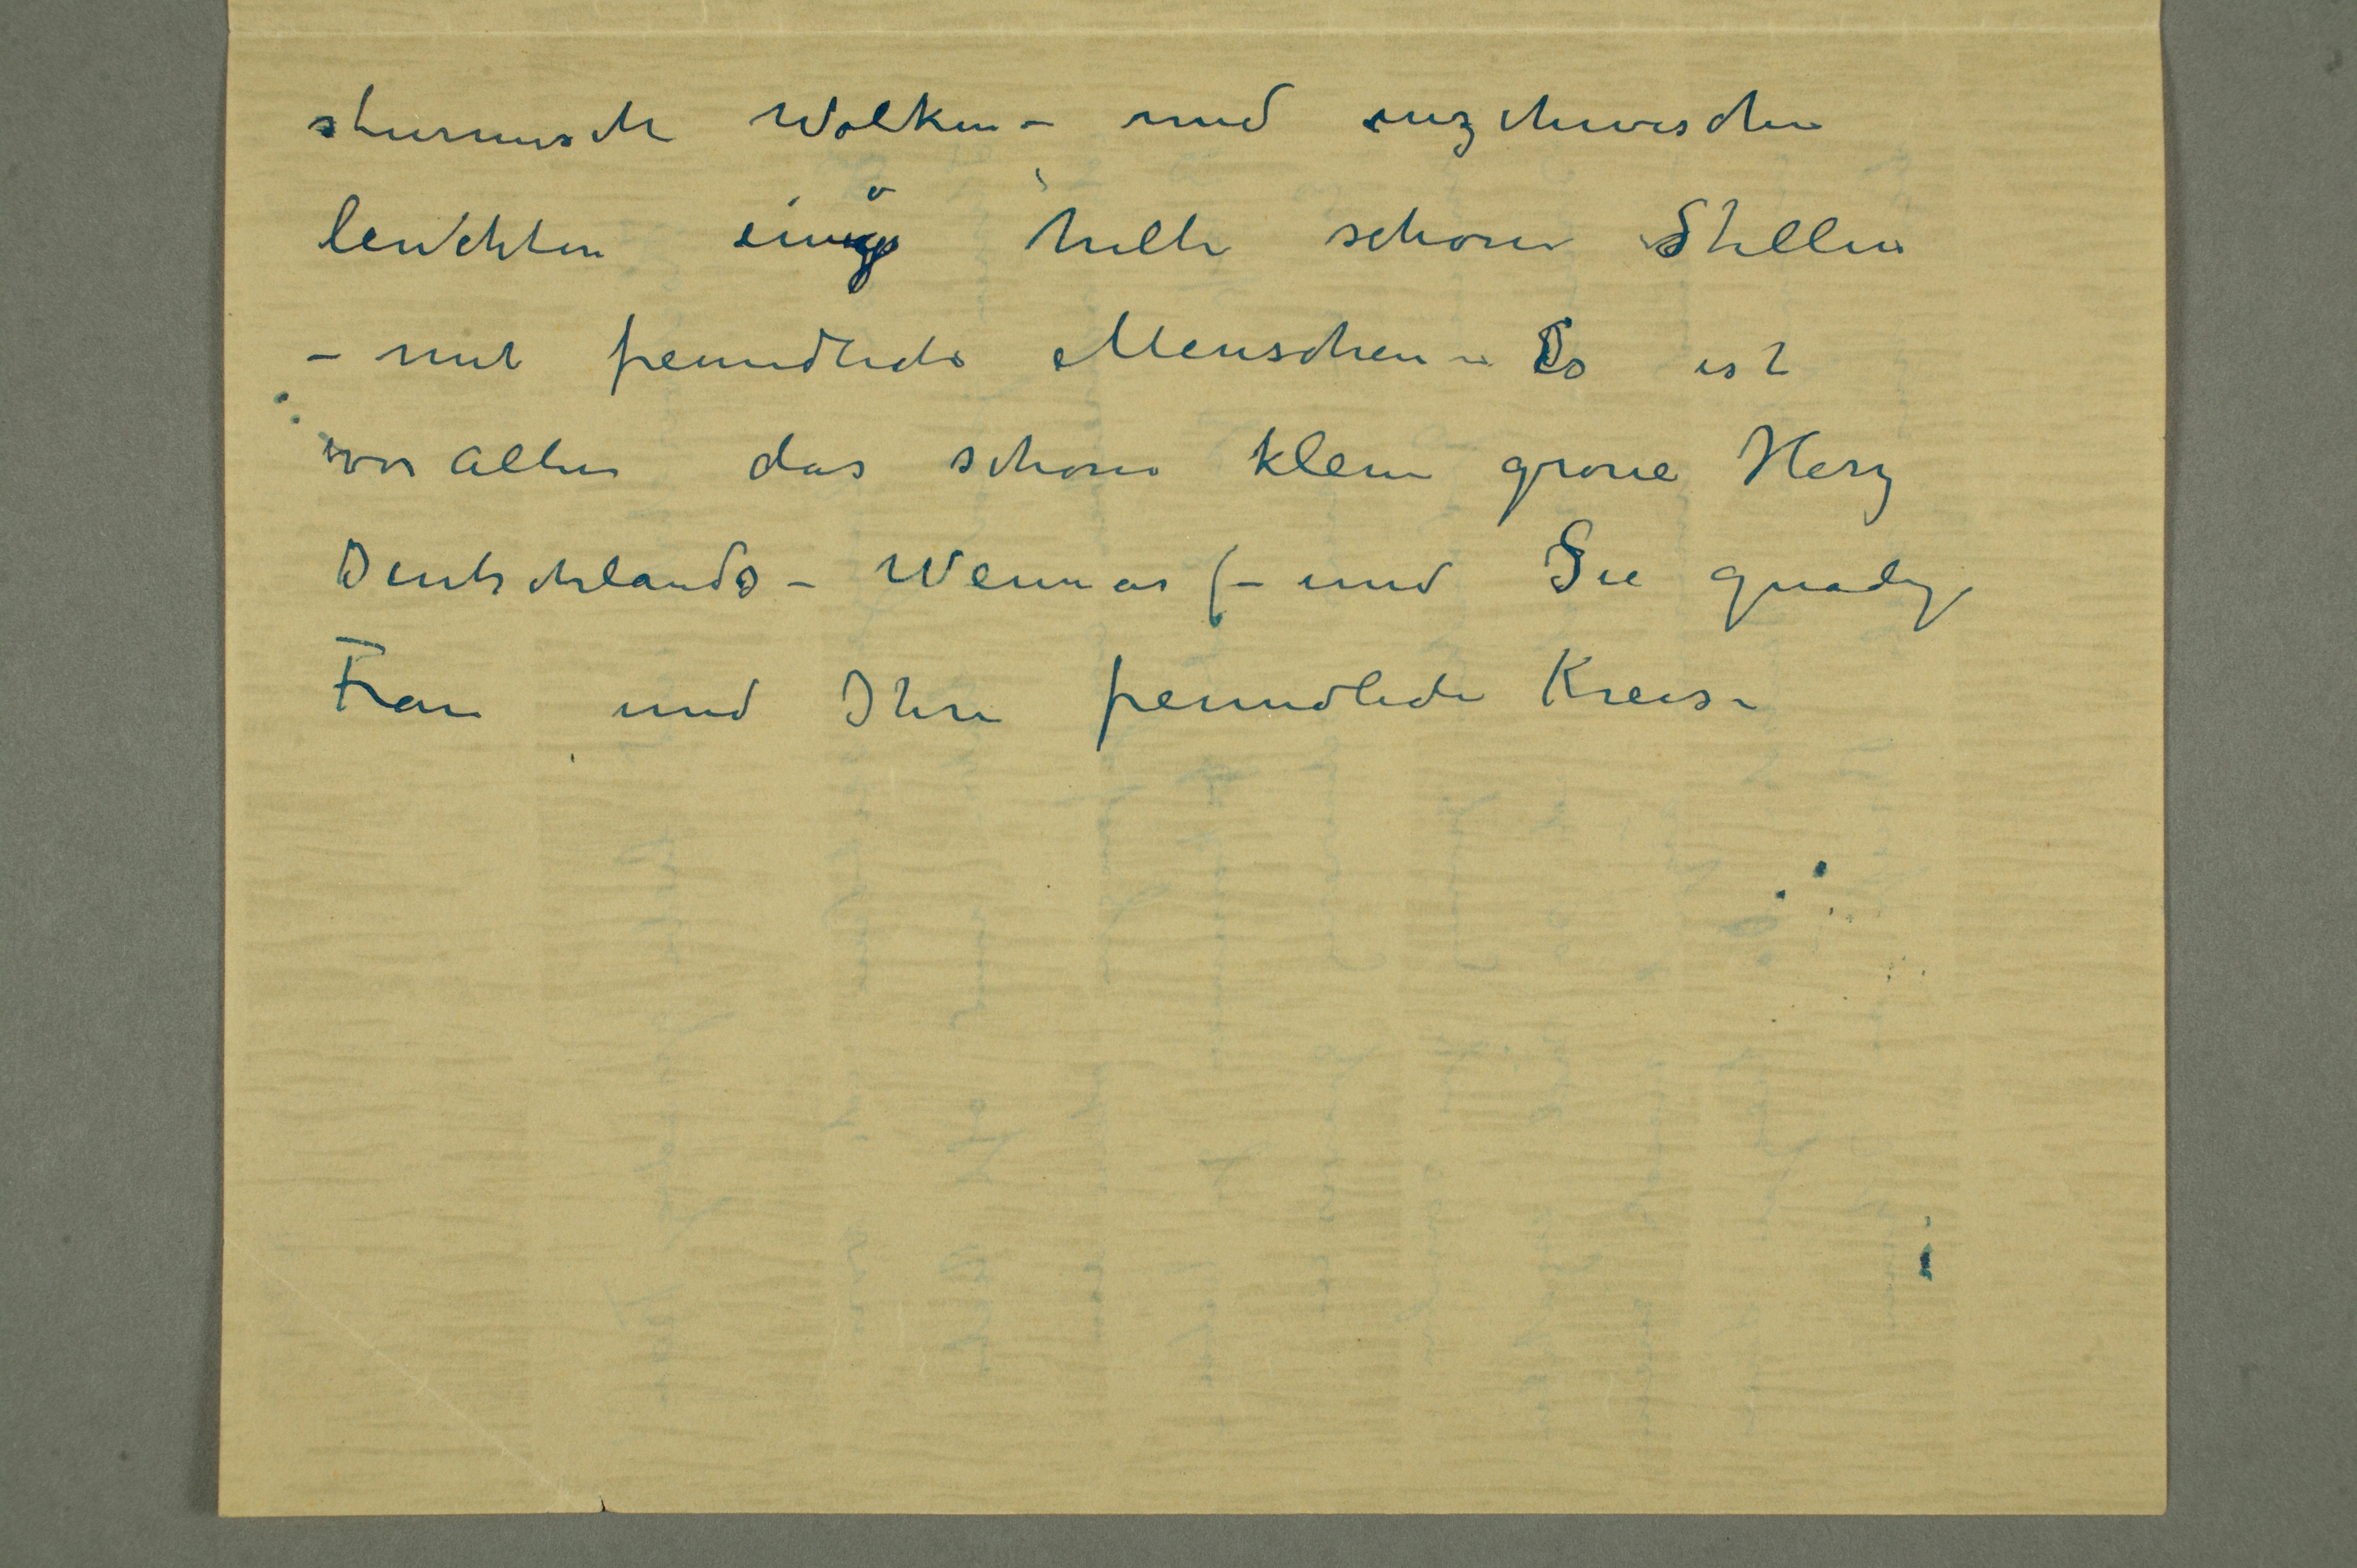 sturmisch Wolken – und inzchwischen
leuchten einige helle schone Stellen
– mit freundliche Menschen – Es ist
vor allen das schone kleine grone Herz
Deutschlands – Weimar (– und Sie gnadige
Frau und Ihre freundliche Kreis –